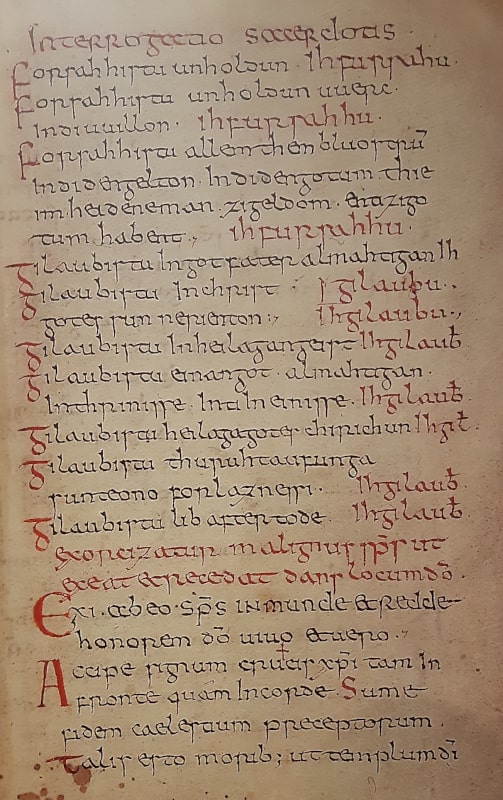 Interrogatio sacerdotis.
Forsahhistu unholdun. Ih fursahhu.
Forsahhistu unholdun uuerc.
Indiuuillon. ih fursahhu.
Forsahhistu allem them bluostrū
indi dengelton. Indi dengotum. thie
im heidene man. zi geldom. enti zi go
tum habent., ih fursahhu.
Gilaubistu In got fater almahtigan Ih
Gilaubistu In christ. gilaubu..
gotes sun nerienton:, Ih gilaubu.,
Gilaubistu In heilagan geist Ih gilaub̄.
Gilaubistu einan got. almahtigan.
In thrinisse. Inti In einisse. Ih gilaub̄.
Gilaubistu heilaga gotes chirichun Ih gil̄.
Gilaubistu thuruh taufunga
sunteono forlaznessi. Ih gilaub̄.
Gilaubistu lib after tode. Ih gilaub̄.
exorcizatur malignus sp̄s ut
exeat & recedat dans locum dō.
Exi ab eo. sp̄s Inmunde & redde
honorem dō uiuo & uero.,
Accipe signum crucis xp̄i tam In
fronte quam In corde. Sume
fidem caelestium preceptorum.
talis esto morib; ut templum dī